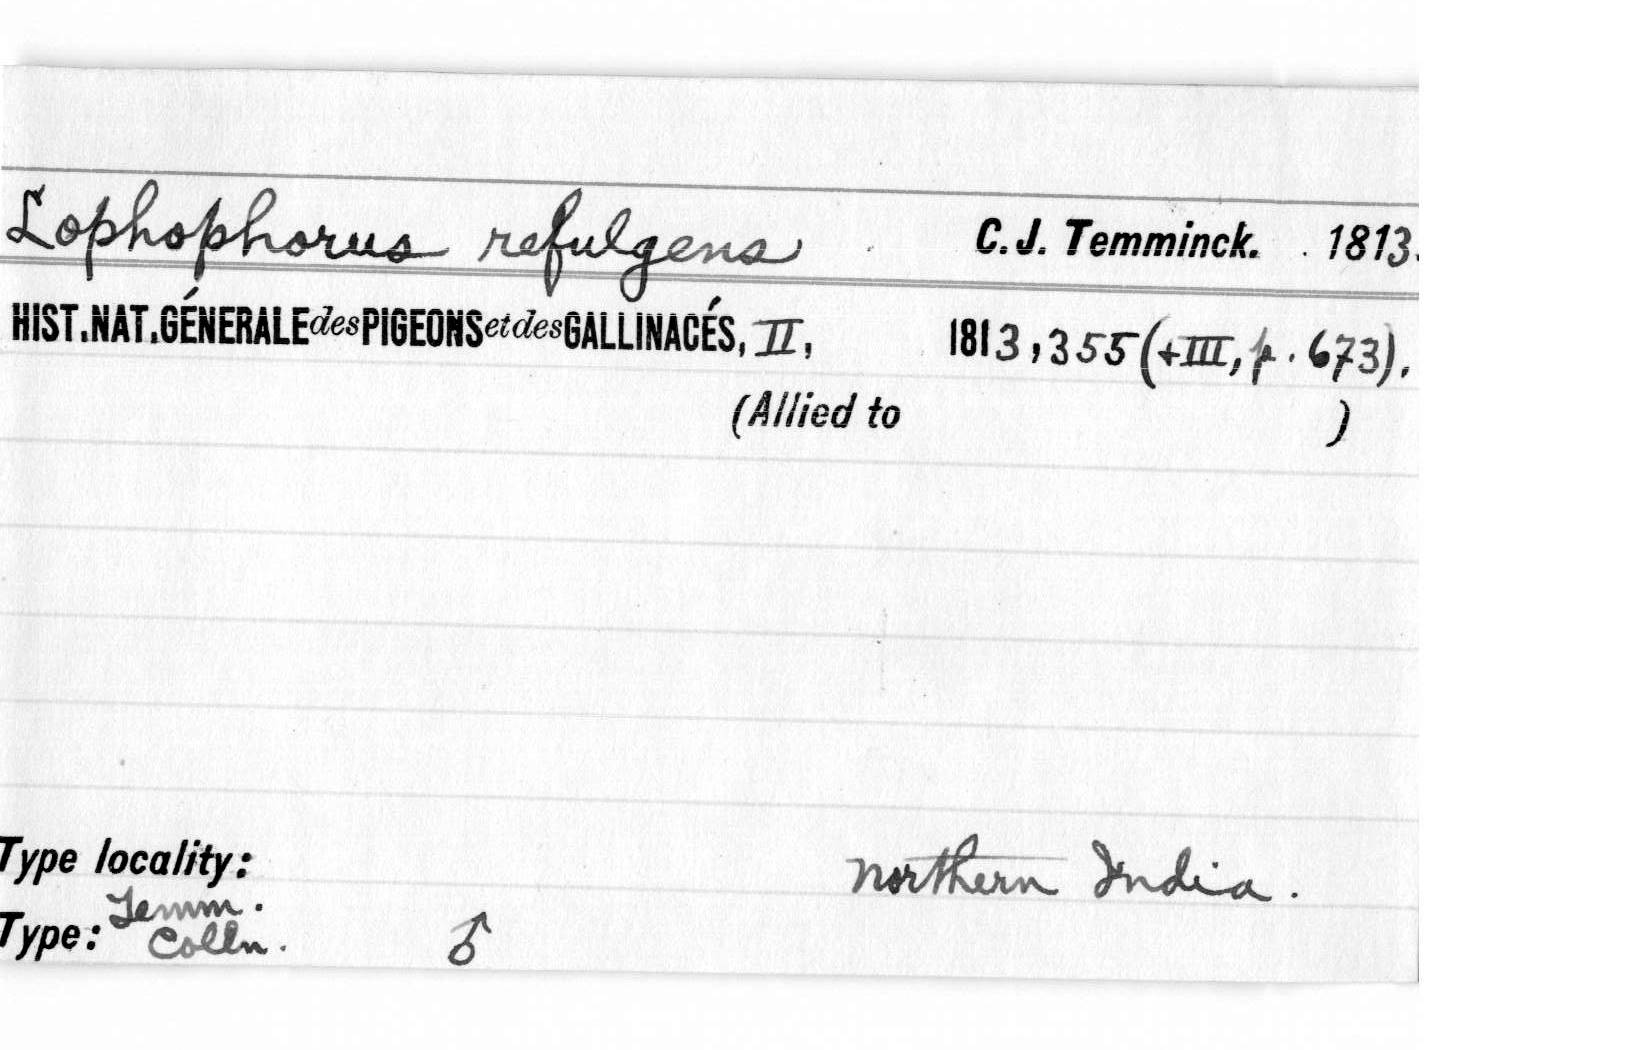 Lophophorus refulgens C. J. Temminck. 1813.
HIST. NAT. GÉNERALE des PIGEONS et des GALLINACÉS, II, 1813, 355 (+III, p. 673).
(Allied to )
Type locality: Northern India.
Temm.
Type: Colln. ♂